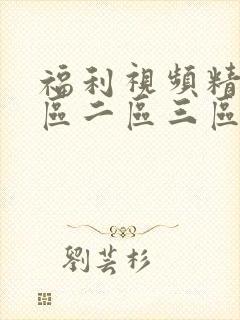 福利視頻精
區二區三區
劉芸杉